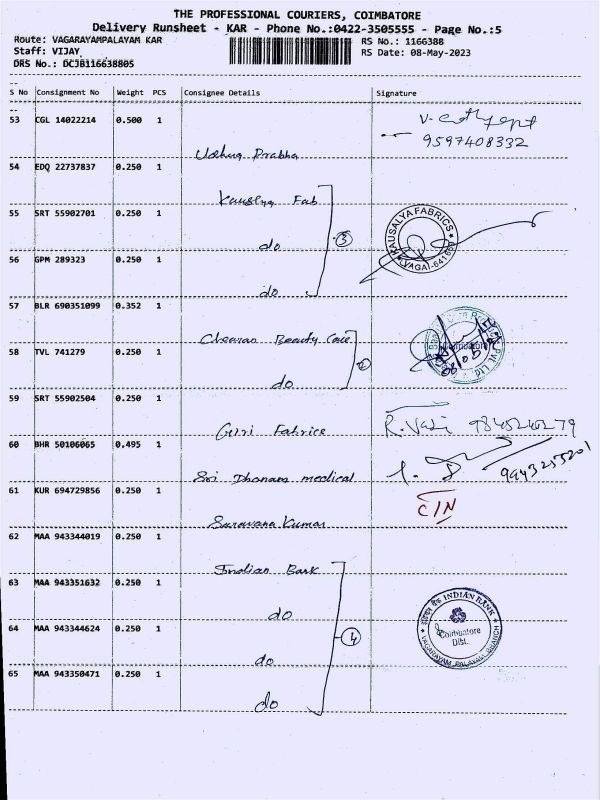 THE PROFESSIONAL COURIERS, COIMBATORE
Delivery Runsheet - KAR - Phone No.:0422-3505555 - Page No.:5
Route: VAGARAYAMPALAYAM KAR RS No.: 1166388
Staff: VIJAY RS Date: 08-May-2023
DRS No.: DCJB116638805
S No Consignment No Weight PCS Consignee Details Signature
53 CGL 14022214 0.500 1
9597408332
Prabha
54 EDQ 22737837 0.250 1
Kausalya Fab
55 SRT 55902701 0.250 1
do
3
KAUSALYA FABRICS
56 GPM 289323 0.250 1
do
57 BLR 690351099 0.352 1
Beauty Care
58 TVL 741279 0.250 1
do
59 SRT 55902504 0.250 1
Giri Fabrics
60 BHR 50106065 0.495 1
Sri Dhanam medical
61 KUR 694729856 0.250 1
C/N
Saravana Kumar
62 MAA 943344019 0.250 1
Indian Bank
63 MAA 943351632 0.250 1
do
INDIAN BANK
Coimbatore
Dist.
VAGARAYAM PALAYAM BRANCH
64 MAA 943344624 0.250 1
4
do
65 MAA 943350471 0.250 1
do